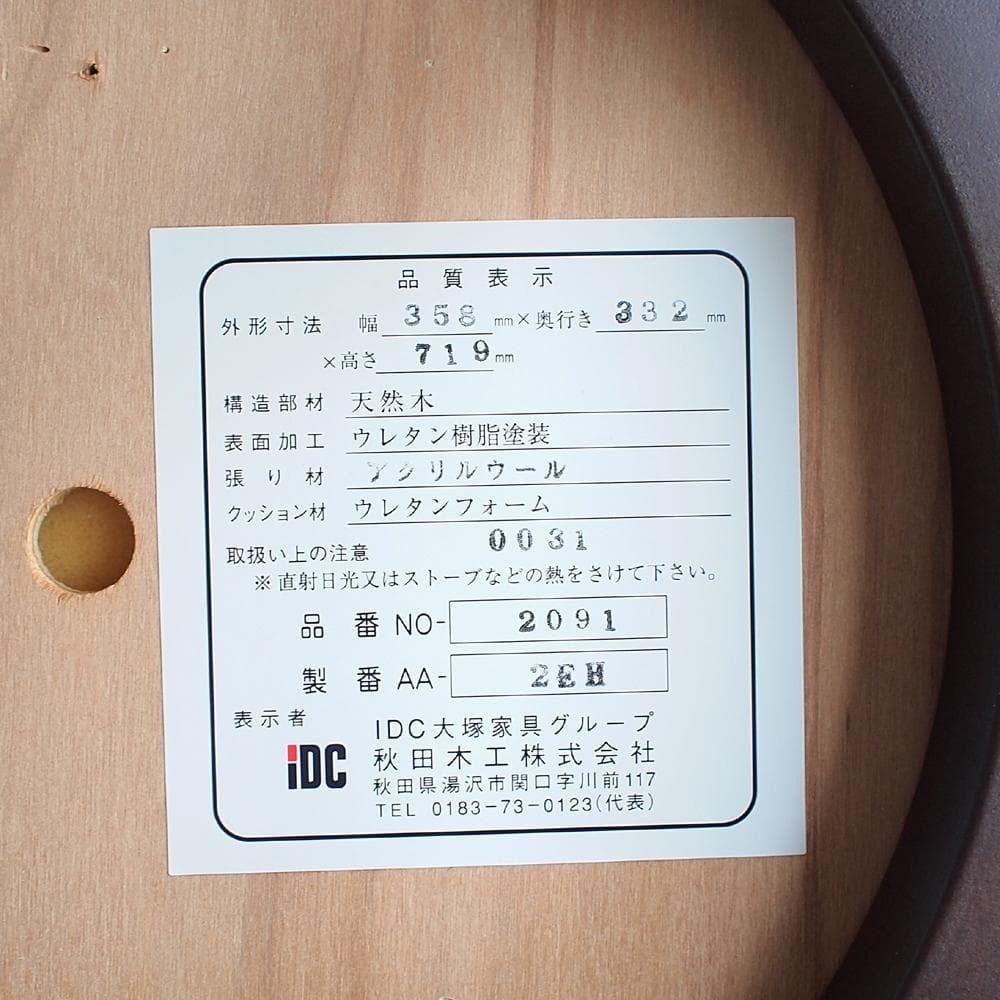 品質表示
外形寸法 幅 358 mm×奥行き 332 mm
×高さ 719 mm
構造部材 天然木
表面加工 ウレタン樹脂塗装
張り材 アクリルウール
クッション材 ウレタンフォーム
取扱い上の注意 0031
※直射日光又はストーブなどの熱をさけて下さい。
品番 NO- 2091
製番 AA- 2EH
表示者 IDC大塚家具グループ
iDC 秋田木工株式会社
秋田県湯沢市関口字川前117
TEL 0183-73-0123(代表)